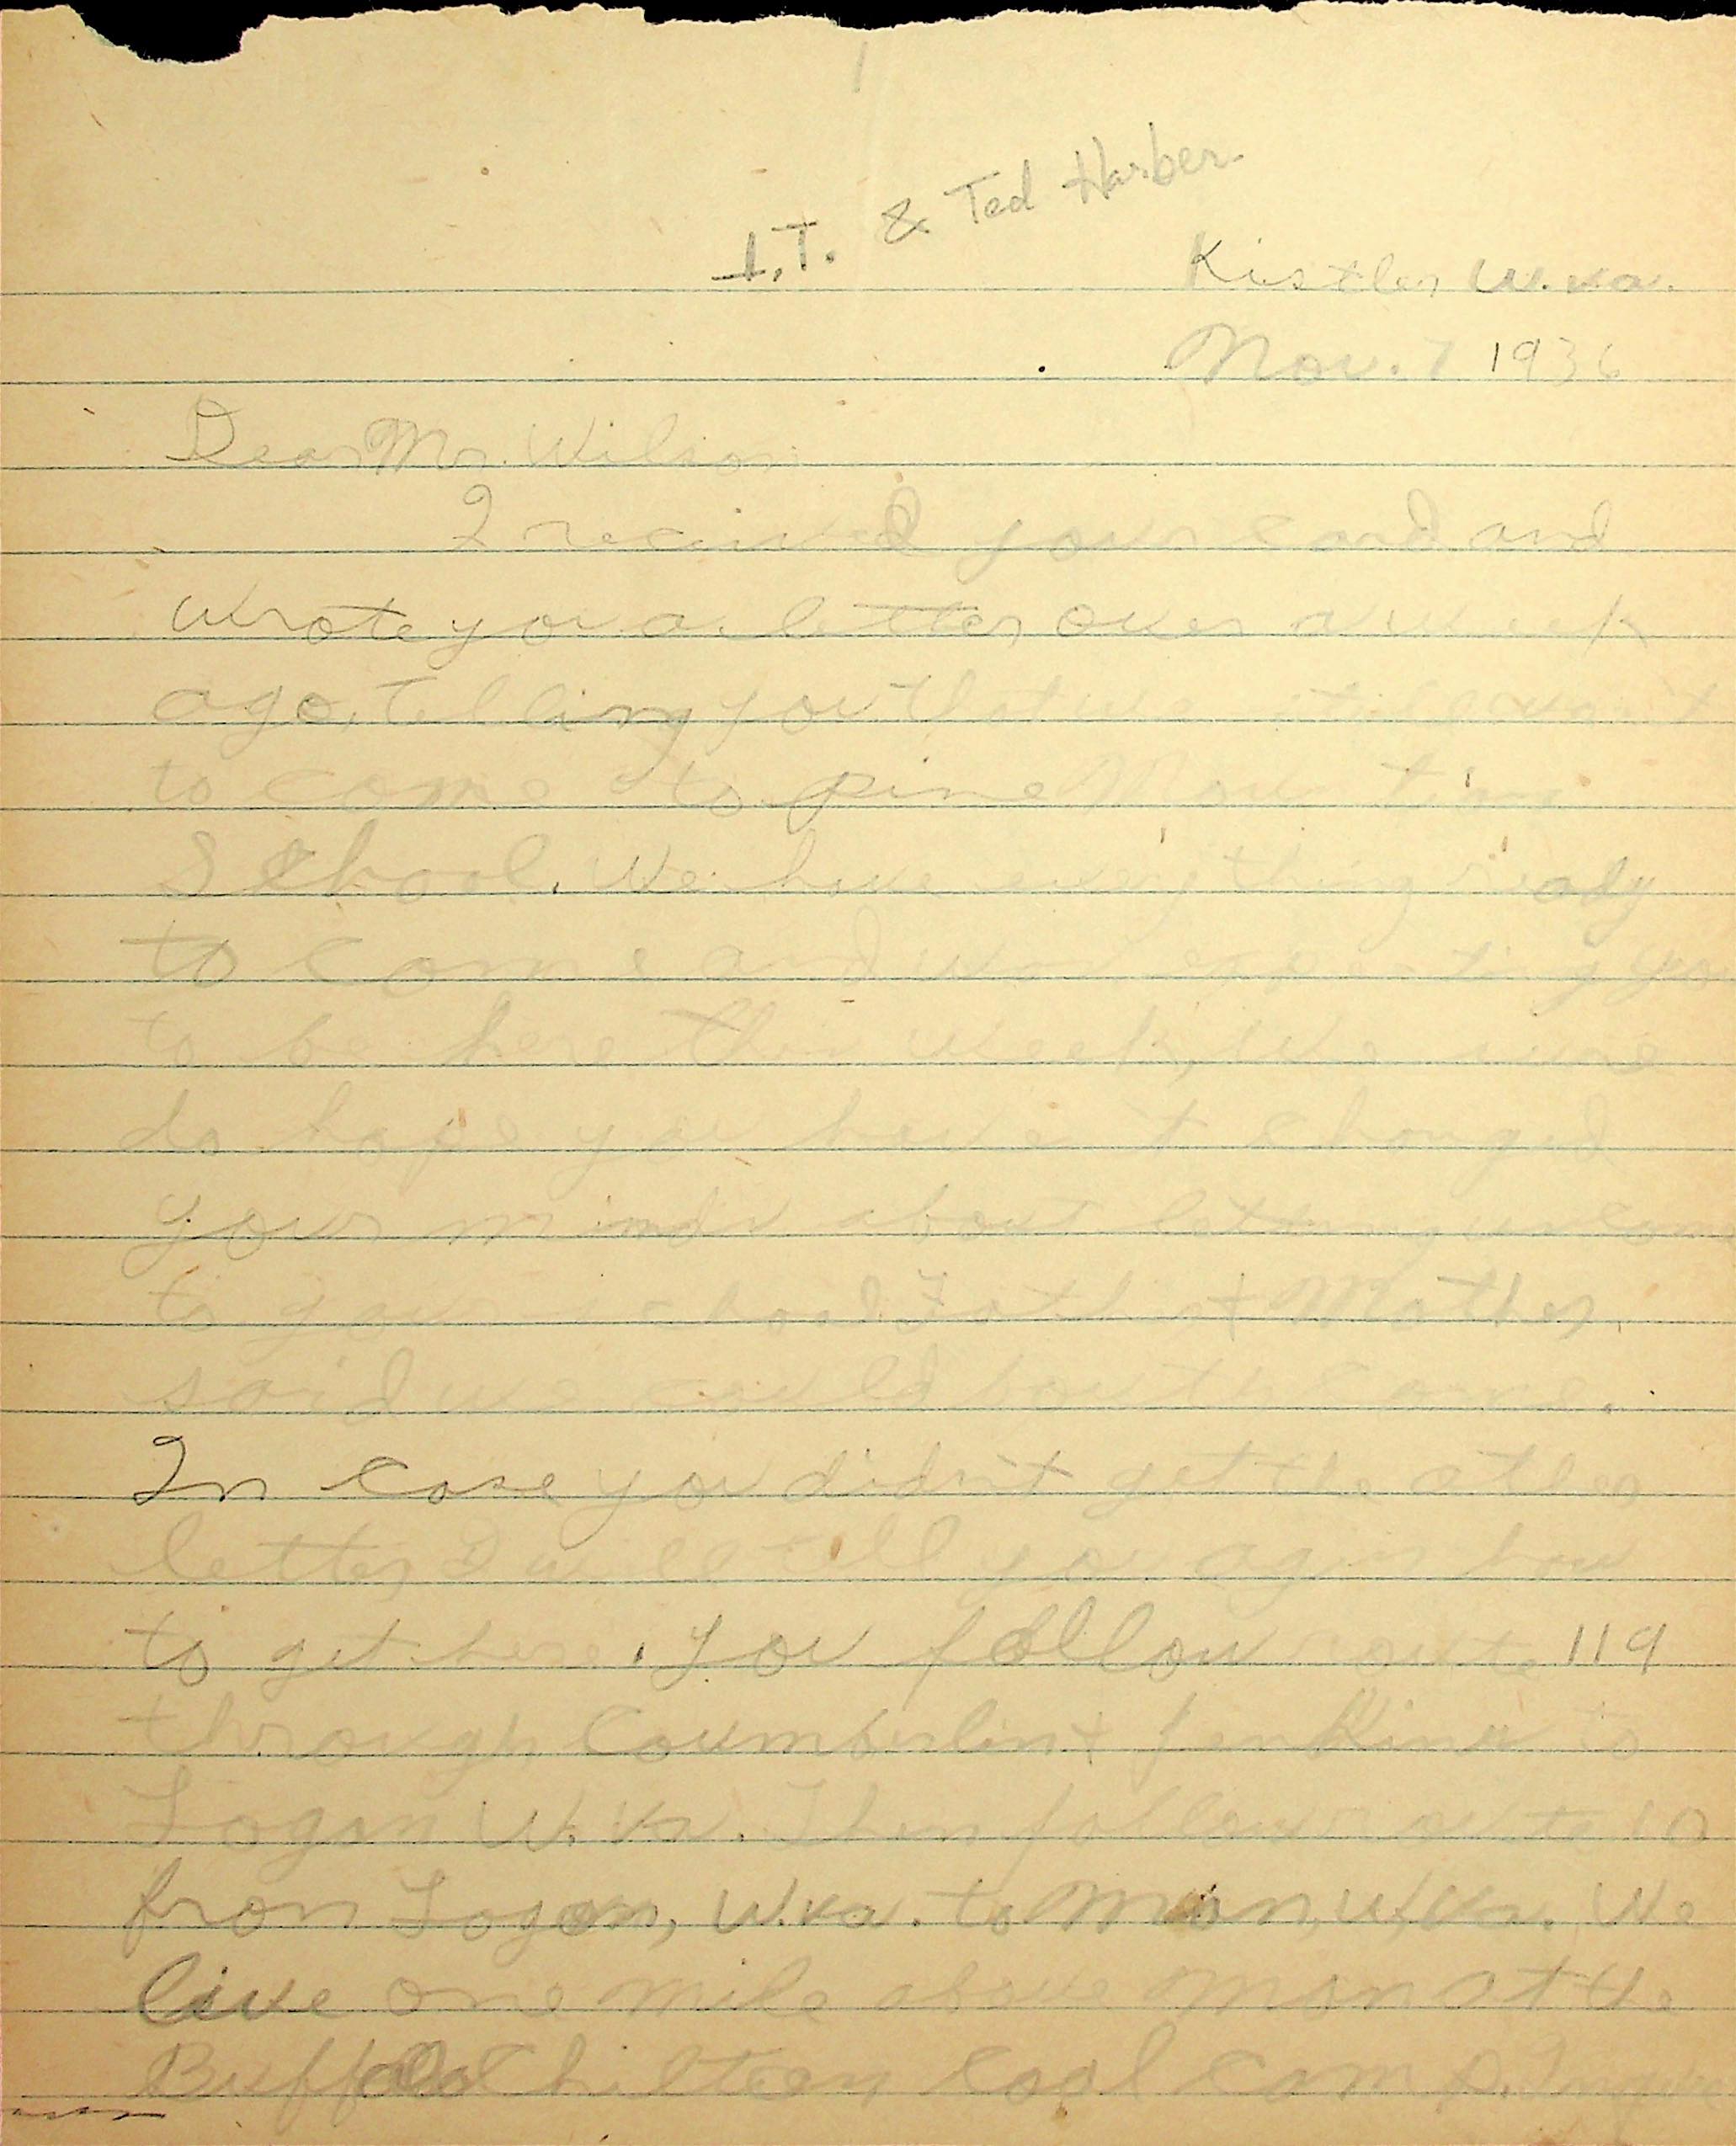 1
I.T. & Ted Harber
Kistler W.va.
Nov. 7 1936
Dear Mr. Wilson
I received your card and
wrote you a letter over a week
ago, telling you that we still want
to come to pine Mountain
School. We have everything ready
to come and was expecting you
to be here this week, We sure
do hope you haven't changed
your mind about letting us come
to your school. Father + Mother
said we could both come.
In case you didn't get the other
letter I will tell you again how
to get here. You follow route 119
through Coumberlin + Jenkins to
Logan W.Va. Then follow route 10
from Logan, W.va. to Man, W.Va. We
live one mile above Man at the
Buffalo coal camp.